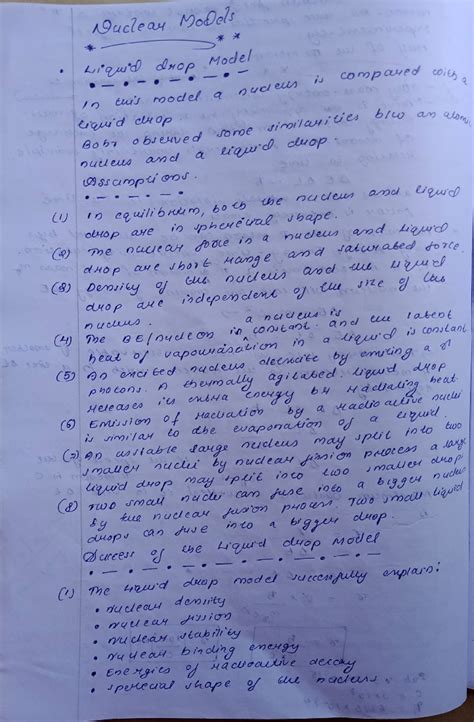 Nuclear Models
Liquid drop Model
In this model a nucleus is compared with a
liquid drop
Bohr observed some similarities b/w an atomic
nucleus and a liquid drop.
Assumptions.
(1) In equilibrium, both the nucleus and liquid
drop are in spherical shape.
(2) The nuclear force in a nucleus and liquid
drop are short range and saturated force.
(3) Density of the nucleus and the liquid
drop are independent of the size of the
nucleus. a nucleus is
(4) The BE/nucleon is constant. and the latent
heat of vapourisation in a liquid is constant
(5) An excited nucleus deexcite by emiting a γ
photons. A thermally agitated liquid drop
releases its extra energy by radiating heat.
(6) Emission of radiation by a radioactive nuclei
is similar to the evaporation of a liquid.
(7) An unstable large nucleus may split into two
smaller nuclei by nuclear fission process a large
liquid drop may split into two smaller drop
(8) Two small nuclei can fuse into a bigger nuclei
by the nuclear fusion process. Two small liquid
drops can fuse into a bigger drop.
Success of the Liquid drop Model
(1) The liquid drop model successfully explain:
• nuclear density
• nuclear fission
• nuclear stability
• nuclear binding energy
• Energies of radioactive decay
• spherical shape of the nucleus